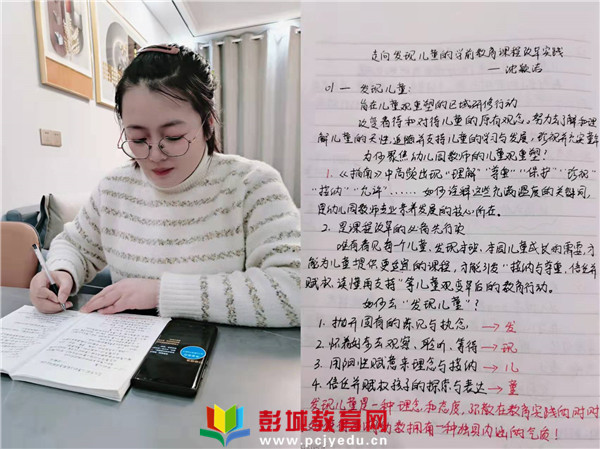 走向发现儿童的学前教育课程改革实践
一、发现儿童:
旨在儿童观重塑的区域研修行动
改变看待和对待儿童的原有观念。努力去了解和理
解儿童的天性,追随并支持儿童的学习与发展,
为何聚焦幼儿园教师的儿童观重塑?
1.从《指南》中高频出现"理解""尊重""保护""珍视"
"接纳""允许"……如何诠释这些充满温度的关键词,
是幼儿园教师专业素养发展的核心所在。
2.是课程改革的必需先行实
唯有看见每个儿童,发现本班、本园儿童成长的需要,才
能为儿童提供更适宜的课程,才能引发"接纳与尊重,信任并
赋权,读懂再支持"等儿童观变革后的教育行动。
如何去"发现儿童"?
1.抛开固有的看见与执念 → 发
2.怀着好奇去观察、聆听、等待 → 现
3.用同理 来理念与接纳 → 儿
4.信任并赋权孩子的探索与表达 → 童
发现儿童是一种理念和态度,
拥有一种独具内涵的气质!
彭城教育网
www.pcjyedu.cn